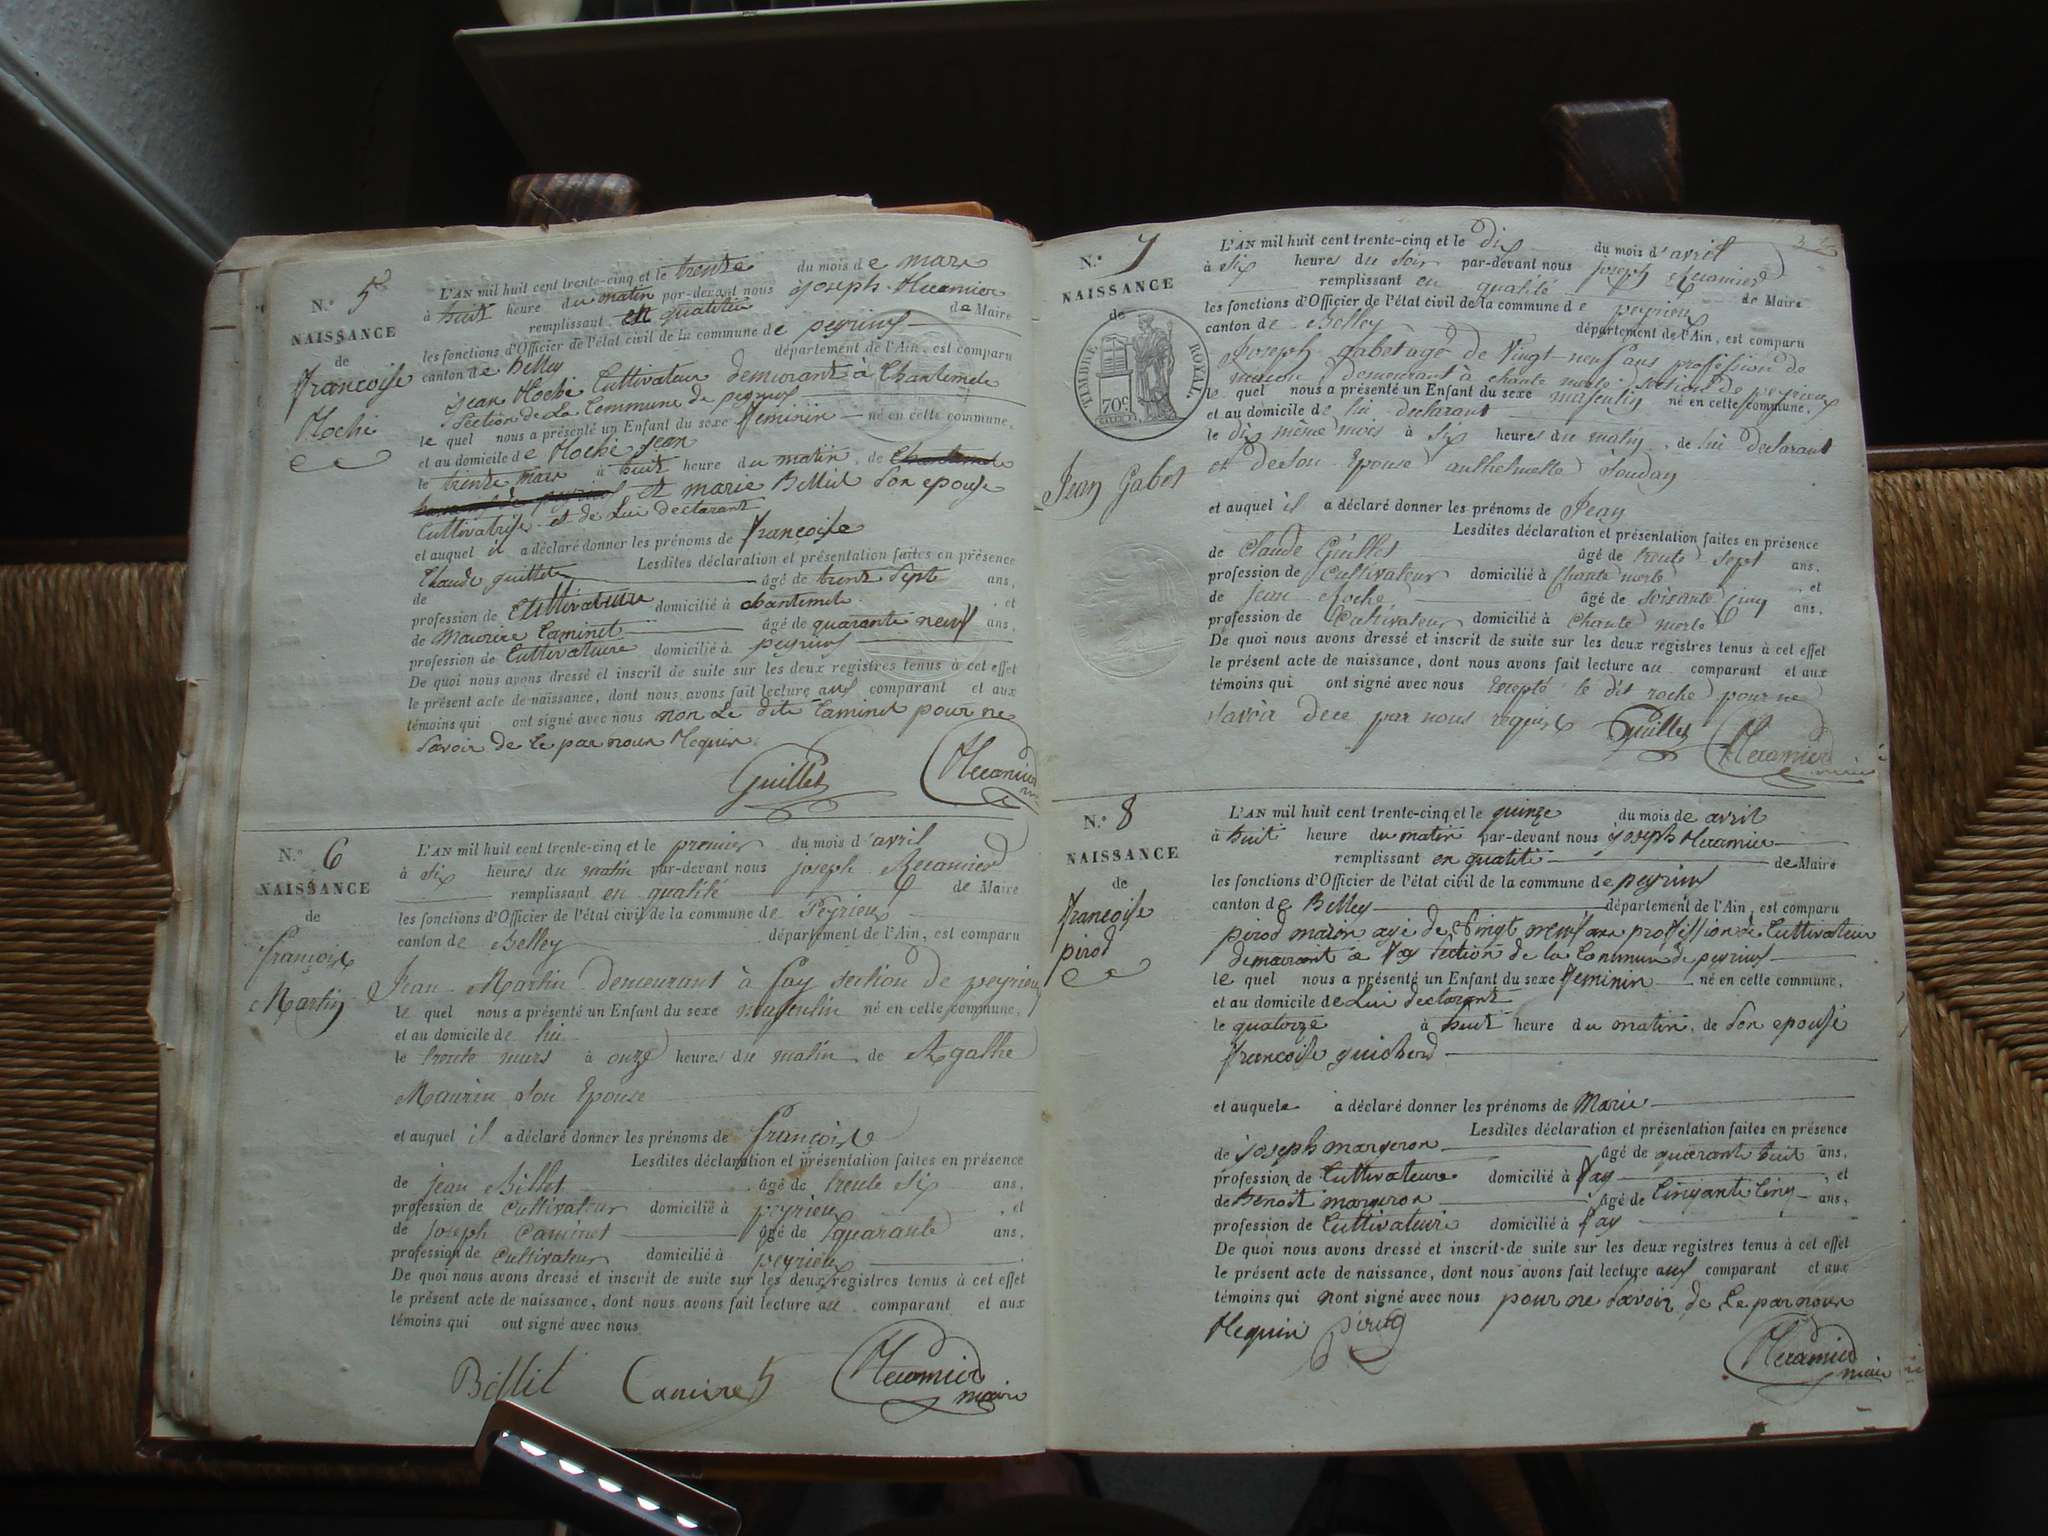 N.° 5
NAISSANCE
de
françoise
Roche
L'AN mil huit cent trente-cinq et le trente du mois de mars
à huit heure du matin par-devant nous joseph Recamier
remplissant en qualitée de Maire
les fonctions d'Officier de l'état civil de la commune de peyrieux
canton de Belley département de l'Ain, est comparu
jean Roche Cultivateur demeurant à Chantemele
section de La Commune de peyrieux
le quel nous a présenté un Enfant du sexe feminin né en cette commune,
et au domicile de Roche jean
le trente mars à huit heure du matin, de Chantemele
et marie Billiet son epouse
Cultivatrise et de Lui declarant
et auquel il a déclaré donner les prénoms de françoise
Lesdites déclaration et présentation faites en présence
de Claude guillet âgé de trente sept ans,
profession de Cultivateur domicilié à chantemele, et
de Maurice Caminet âgé de quarante neuf ans,
profession de Cultivateure domicilié à peyrieux
De quoi nous avons dressé et inscrit de suite sur les deux registres tenus à cet effet
le présent acte de naissance, dont nous avons fait lecture aux comparant et aux
témoins qui ont signé avec nous non Le dite Caminet pour ne
savoir de ce par nous Requis
Guillet Recamier
N.° 6
NAISSANCE
de
françois
Martin
L'AN mil huit cent trente-cinq et le premier du mois d'avril
à six heures du matin par-devant nous joseph Recamier
remplissant en qualité de Maire
les fonctions d'Officier de l'état civil de la commune de Peyrieux
canton de Belley département de l'Ain, est comparu
Jean Martin demeurant à fay section de peyrieux
le quel nous a présenté un Enfant du sexe masculin né en cette commune,
et au domicile de lui
le trente mars à onze heures du matin de Agathe
Maurin son Epouse
et auquel il a déclaré donner les prénoms de françois
Lesdites déclaration et présentation faites en présence
de jean Billet âgé de trente six ans,
profession de Cultivateur domicilié à peyrieu, et
de joseph Caminet âgé de quarante ans,
profession de Cultivateur domicilié à peyrieux
De quoi nous avons dressé et inscrit de suite sur les deux registres tenus à cet effet
le présent acte de naissance, dont nous avons fait lecture au comparant et aux
témoins qui ont signé avec nous
Billiet Caminet Recamier
maire
N.° 7
NAISSANCE
de
TIMBRE ROYAL
70c
Jean Gabet
L'AN mil huit cent trente-cinq et le dix du mois d'avril
à six heures du soir par-devant nous joseph Recamier
remplissant en qualité de Maire
les fonctions d'Officier de l'état civil de la commune de peyrieu
canton de Belley département de l'Ain, est comparu
Joseph gabet agé de Vingt-neuf ans profession de
maçon demeurant à chante merle section de peyrieux
le quel nous a présenté un Enfant du sexe masculin né en cette commune,
et au domicile de lui declarant
le dix même mois à six heures du matin, de lui declarant
et de son Epouse anthelmette Soudan
et auquel il a déclaré donner les prénoms de Jean
Lesdites déclaration et présentation faites en présence
de Claude Guillet âgé de trente sept ans,
profession de Cultivateur domicilié à Chante merle, et
de jean Roche âgé de soisante cinq ans,
profession de Cultivateur domicilié à Chante merle
De quoi nous avons dressé et inscrit de suite sur les deux registres tenus à cet effet
le présent acte de naissance, dont nous avons fait lecture au comparant et aux
témoins qui ont signé avec nous excepté le dit roche pour ne
savoir de ce par nous requis Guillet Recamier
maire
N.° 8
NAISSANCE
de
françoise
pirod
L'AN mil huit cent trente-cinq et le quinze du mois de avril
à huit heure du matin par-devant nous joseph Recamier
remplissant en qualité de Maire
les fonctions d'Officier de l'état civil de la commune de peyrieux
canton de Belley département de l'Ain, est comparu
pirod agé de Vingt neuf ans profession de Cultivateur
demeurant à fay section de la Commune de peyrieux
le quel nous a présenté un Enfant du sexe feminin né en cette commune,
et au domicile de Lui declarant
le quatorze à huit heure du matin, de son epouse
françoise guichard
et auquele a déclaré donner les prénoms de Marie
Lesdites déclaration et présentation faites en présence
de joseph margeron âgé de quarante huit ans,
profession de Cultivateure domicilié à fay, et
de Benoit margeron âgé de Cinqante Cinq ans,
profession de Cultivateur domicilié à fay
De quoi nous avons dressé et inscrit de suite sur les deux registres tenus à cet effet
le présent acte de naissance, dont nous avons fait lecture aux comparant et aux
témoins qui nont signé avec nous pour ne savoir de ce par nous
Requis pirod
Recamier
maire